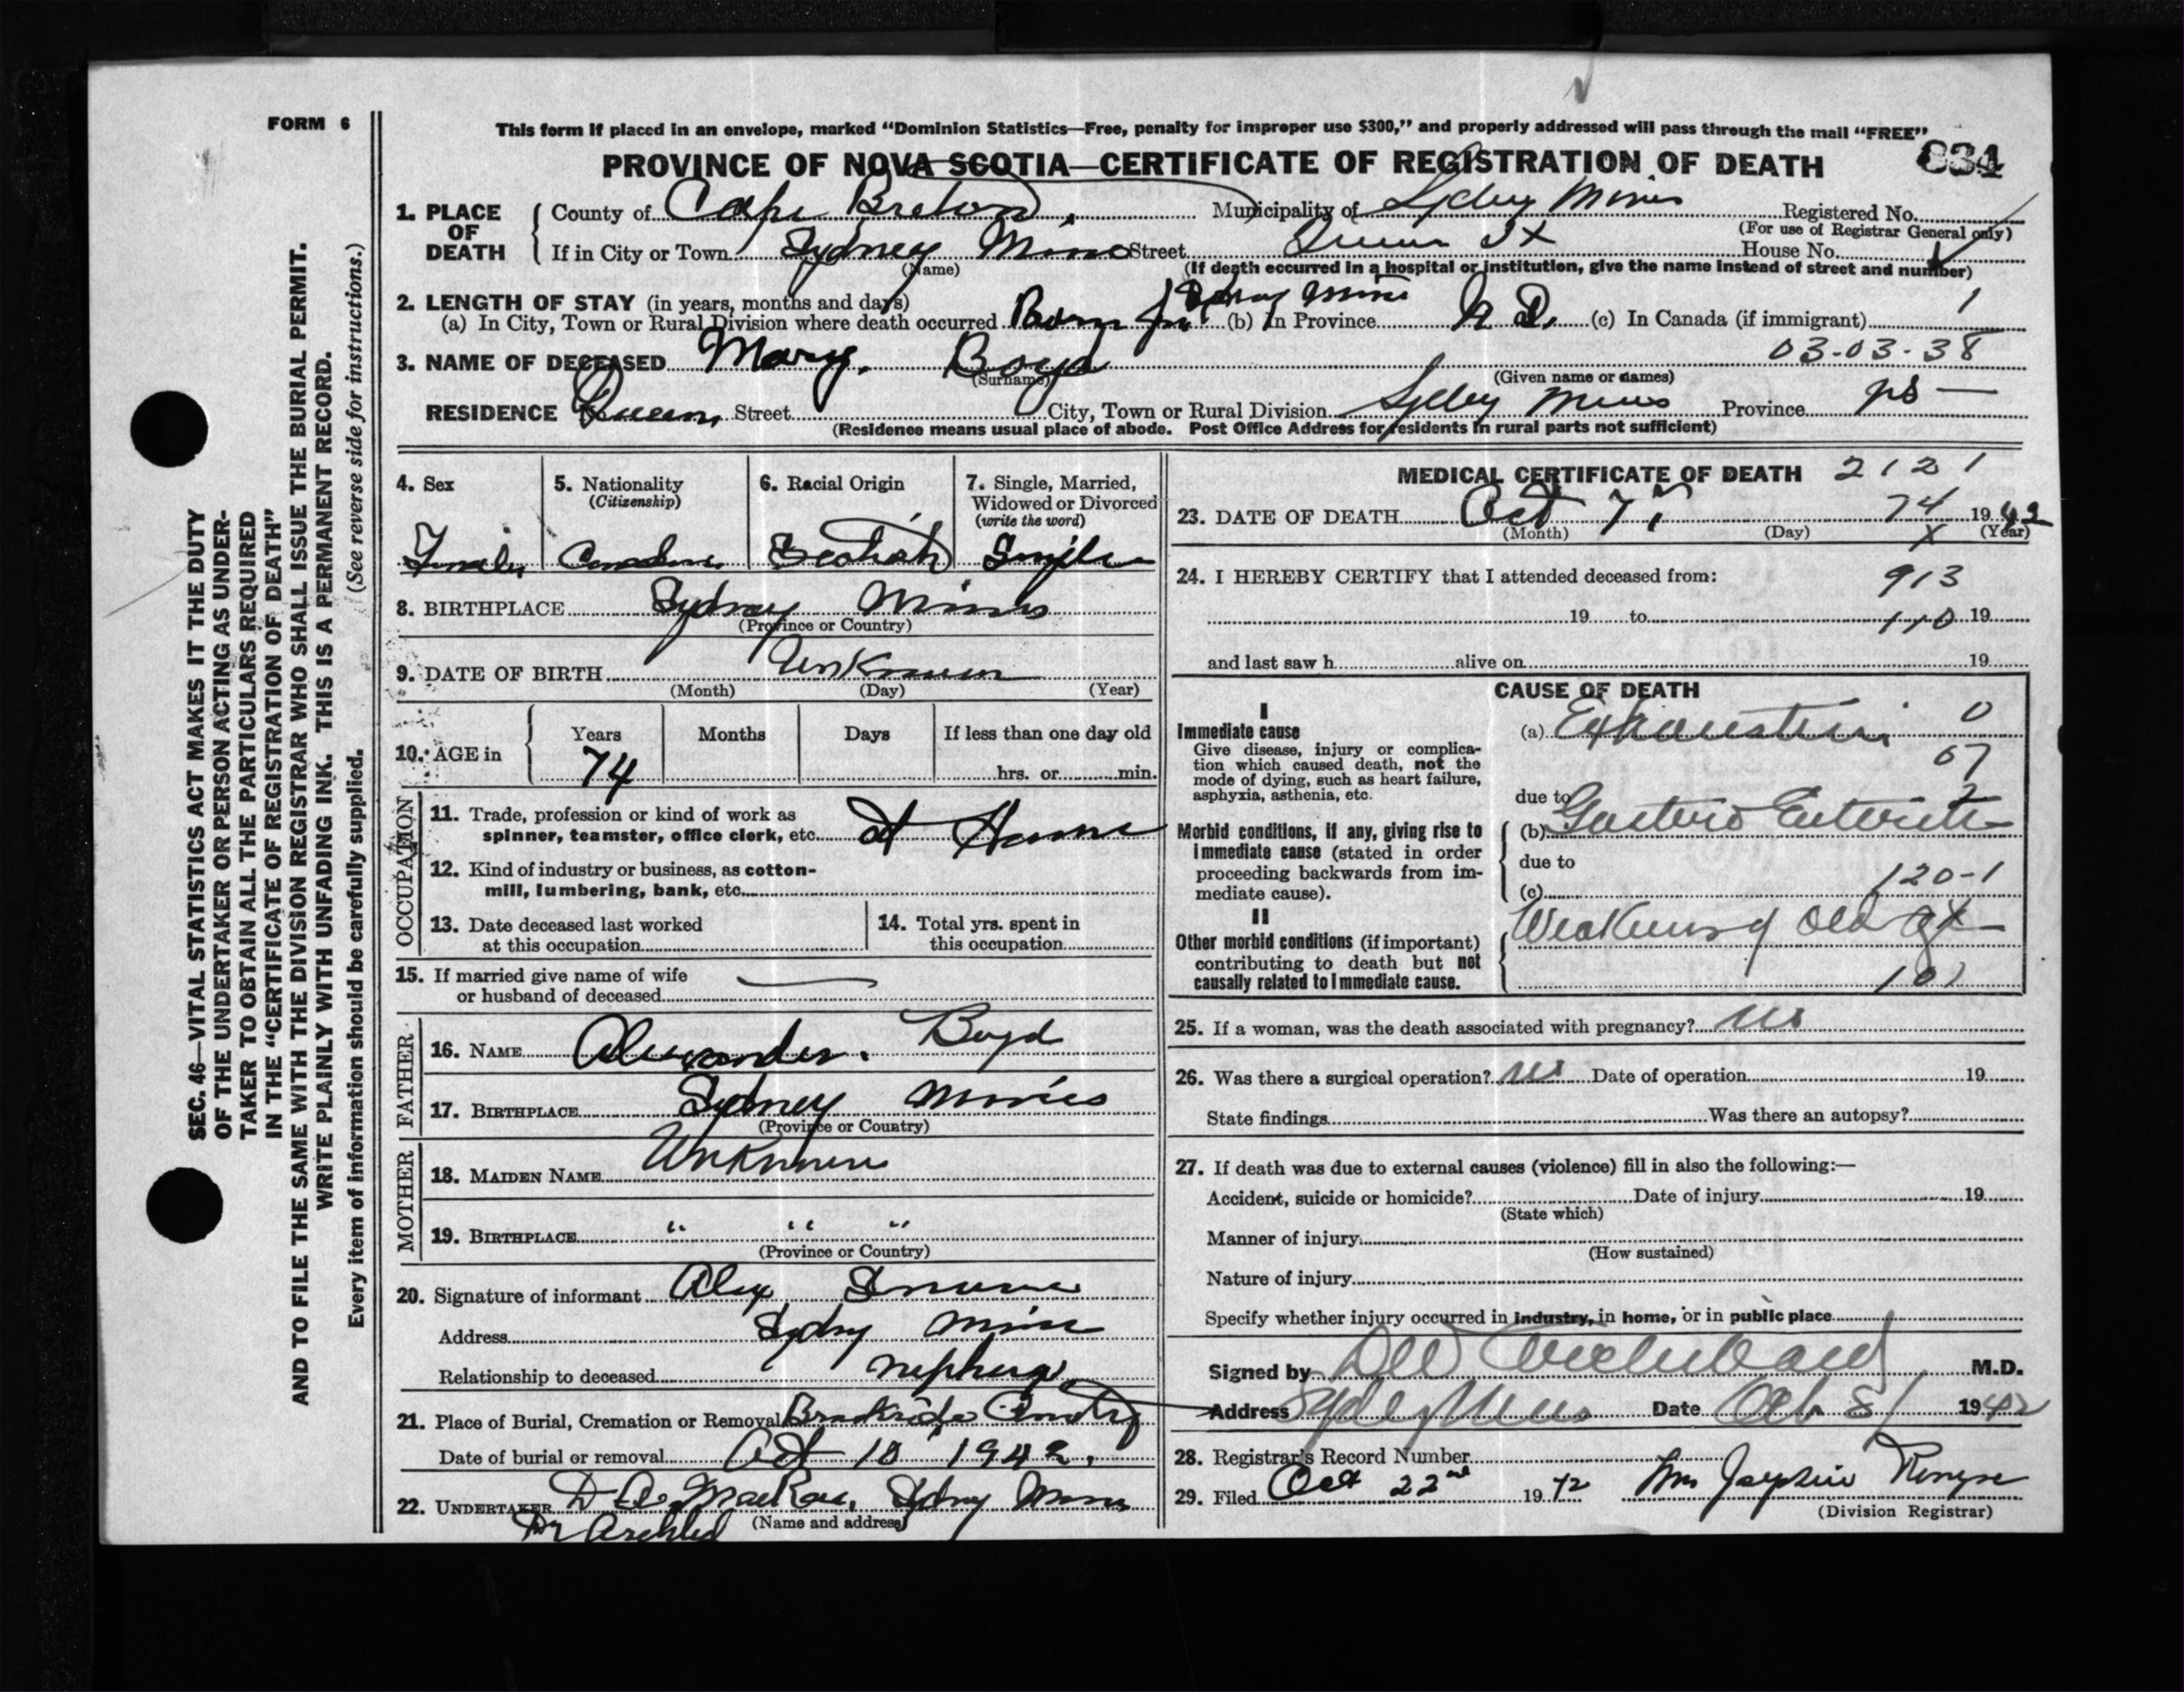 FORM 6
This form if placed in an envelope, marked “Dominion Statistics—Free, penalty for improper use $300,” and properly addressed will pass through the mail “FREE”
PROVINCE OF NOVA SCOTIA—CERTIFICATE OF REGISTRATION OF DEATH 834
1. PLACE OF DEATH
County of Cape Breton Municipality of Sydney Mines Registered No.
(For use of Registrar General only)
If in City or Town Sydney Mines Street Queen St House No.
(Name) (If death occurred in a hospital or institution, give the name instead of street and number)
2. LENGTH OF STAY (in years, months and days)
(a) In City, Town or Rural Division where death occurred Born in Sydney Mines (b) In Province N S. (c) In Canada (if immigrant) 1
03-03-38
3. NAME OF DECEASED Mary. Boyd
(Surname) (Given name or names)
RESIDENCE Queen Street City, Town or Rural Division Sydney Mines Province NS
(Residence means usual place of abode. Post Office Address for residents in rural parts not sufficient)
SEC. 46—VITAL STATISTICS ACT MAKES IT THE DUTY
OF THE UNDERTAKER OR PERSON ACTING AS UNDER-
TAKER TO OBTAIN ALL THE PARTICULARS REQUIRED
IN THE “CERTIFICATE OF REGISTRATION OF DEATH”
AND TO FILE THE SAME WITH THE DIVISION REGISTRAR WHO SHALL ISSUE THE BURIAL PERMIT.
WRITE PLAINLY WITH UNFADING INK. THIS IS A PERMANENT RECORD.
Every item of information should be carefully supplied. (See reverse side for instructions.)
4. Sex 5. Nationality 6. Racial Origin 7. Single, Married,
(Citizenship) Widowed or Divorced
(write the word)
Female Canadian Scotish Single
8. BIRTHPLACE Sydney Mines
(Province or Country)
9. DATE OF BIRTH Unknown
(Month) (Day) (Year)
10. AGE in Years Months Days If less than one day old
74 hrs. or min.
OCCUPATION
11. Trade, profession or kind of work as
spinner, teamster, office clerk, etc. At Home
12. Kind of industry or business, as cotton-
mill, lumbering, bank, etc.
13. Date deceased last worked 14. Total yrs. spent in
at this occupation this occupation
15. If married give name of wife
or husband of deceased
FATHER
16. NAME Alexander. Boyd
17. BIRTHPLACE Sydney Mines
(Province or Country)
MOTHER
18. MAIDEN NAME Unknown
19. BIRTHPLACE “ “ “
(Province or Country)
20. Signature of informant Alex
Address Sydney Mines
Relationship to deceased nephew
21. Place of Burial, Cremation or Removal
Date of burial or removal Oct 10 1942.
22. UNDERTAKER D A. MacRae, Sydney Mines
(Name and address)
MEDICAL CERTIFICATE OF DEATH 2121
23. DATE OF DEATH Oct 7, 74 1942
(Month) (Day) X (Year)
24. I HEREBY CERTIFY that I attended deceased from: 913
19 to 110 19
and last saw h alive on 19
CAUSE OF DEATH
I
Immediate cause
Give disease, injury or complica-
tion which caused death, not the
mode of dying, such as heart failure,
asphyxia, asthenia, etc.
(a) Exhaustion 0
07
due to
Morbid conditions, if any, giving rise to
immediate cause (stated in order
proceeding backwards from im-
mediate cause).
(b) Gastero Enteritis
due to
(c) 120-1
II
Other morbid conditions (if important)
contributing to death but not
causally related to immediate cause.
Weakening old age
101
25. If a woman, was the death associated with pregnancy? no
26. Was there a surgical operation? no Date of operation 19
State findings Was there an autopsy?
27. If death was due to external causes (violence) fill in also the following:—
Accident, suicide or homicide? Date of injury 19
(State which)
Manner of injury
(How sustained)
Nature of injury
Specify whether injury occurred in industry, in home, or in public place
Signed by Archibald M.D.
Address Sydney Mines Date Oct 8/ 1942
28. Registrar's Record Number
29. Filed Oct 22nd 1942 Mrs
(Division Registrar)